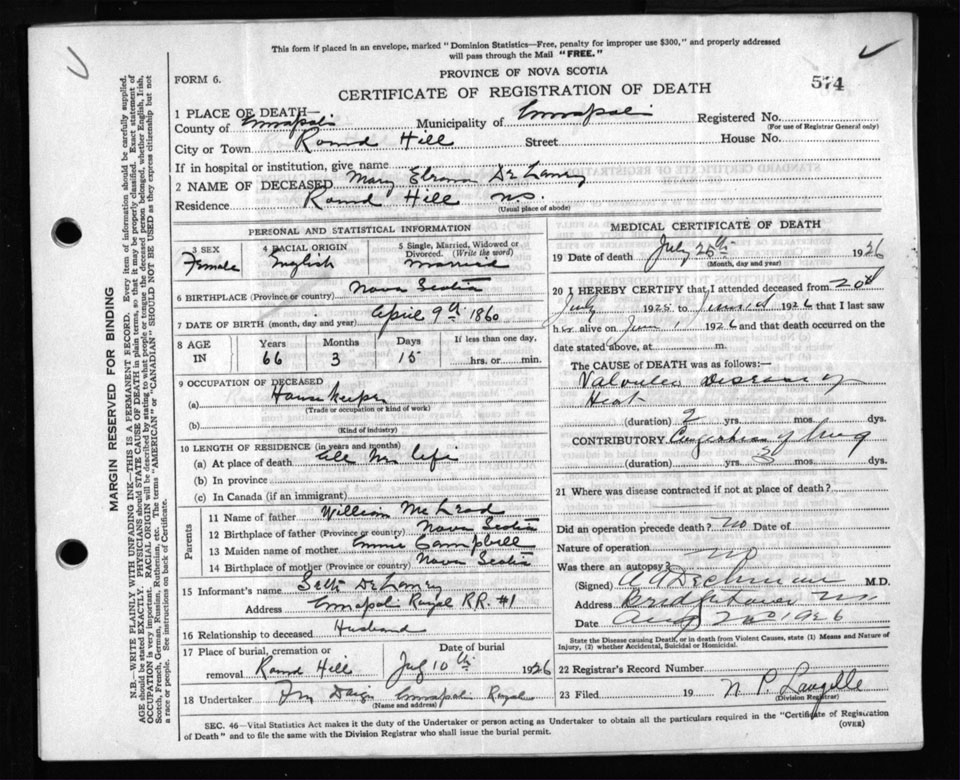 This form if placed in an envelope, marked "Dominion Statistics—Free, penalty for improper use $300," and properly addressed
will pass through the Mail "FREE."
PROVINCE OF NOVA SCOTIA
FORM 6.
CERTIFICATE OF REGISTRATION OF DEATH
574
MARGIN RESERVED FOR BINDING
N.B.—WRITE PLAINLY WITH UNFADING INK—THIS IS A PERMANENT RECORD. Every item of information should be carefully supplied.
AGE should be stated EXACTLY. PHYSICIANS should STATE CAUSE OF DEATH in plain terms, so that it may be properly classified. Exact statement of
OCCUPATION is very important. RACIAL ORIGIN will be described by stating to what people or tongue the deceased person belonged, whether English, Irish,
Scotch, French, German, Russian, Ruthenian, etc. The terms "AMERICAN" or "CANADIAN" SHOULD NOT BE USED as they express citizenship but not
a race or people. See instructions on back of Certificate.
1 PLACE OF DEATH—
County of Municipality of Registered No.
(For use of Registrar General only)
City or Town Round Hill Street House No.
If in hospital or institution, give name
2 NAME OF DECEASED Mary DeLancy
Residence Round Hill N.S.
(Usual place of abode)
PERSONAL AND STATISTICAL INFORMATION
3 SEX
Female
4 RACIAL ORIGIN
English
5 Single, Married, Widowed or
Divorced. (Write the word)
Married
6 BIRTHPLACE (Province or country) Nova Scotia
7 DATE OF BIRTH (month, day and year) April 9th 1860
8 AGE IN
Years Months Days If less than one day,
66 3 15 hrs. or min.
9 OCCUPATION OF DECEASED
(a) House Keeper
(Trade or occupation or kind of work)
(b)
(Kind of industry)
10 LENGTH OF RESIDENCE (in years and months)
(a) At place of death all life
(b) In province
(c) In Canada (if an immigrant)
Parents
11 Name of father William McLead
12 Birthplace of father (Province or country) Nova Scotia
13 Maiden name of mother Campbell
14 Birthplace of mother (Province or country) Nova Scotia
15 Informant's name DeLancy
Address Royal RR. #1
16 Relationship to deceased Husband
17 Place of burial, cremation or removal Round Hill
Date of burial
10th 1926
18 Undertaker Royal
(Name and address)
MEDICAL CERTIFICATE OF DEATH
19 Date of death July 25th 1926
(Month, day and year)
20 I HEREBY CERTIFY that I attended deceased from 20th
July 1925 to 1926 that I last saw
her alive on June 1 1926 and that death occurred on the
date stated above, at m.
The CAUSE OF DEATH was as follows:—
Disease of
(duration) 2 yrs. mos. dys.
CONTRIBUTORY of
(duration) yrs. 3 mos. dys.
21 Where was disease contracted if not at place of death?
Did an operation precede death? no Date of
Nature of operation
Was there an autopsy? no
(Signed) M.D.
Address Bridgetown N.S.
Date Aug 1926
State the Disease causing Death, or in death from Violent Causes, state (1) Means and Nature of
Injury, (2) whether Accidental, Suicidal or Homicidal.
22 Registrar's Record Number
23 Filed 19 N. P. Langille
(Division Registrar)
SEC. 46—Vital Statistics Act makes it the duty of the Undertaker or person acting as Undertaker to obtain all the particulars required in the "Certificate of Registration
of Death" and to file the same with the Division Registrar who shall issue the burial permit.
(OVER)